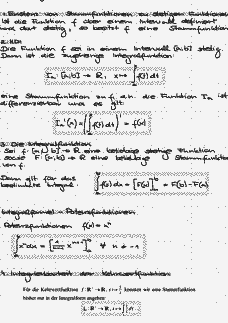 1. Existenz von Stammfunktionen zu stetigen Funktionen
Ist die Funktion f über einem Intervall definiert
und dort stetig, so besitzt f eine Stammfunktion
Die Funktion f sei in einem Intervall [a,b] stetig.
Dann ist die zugehörige Integralfunktion
Iₐ: [a,b] → R, x ↦ ∫ f(t) dt
eine Stammfunktion zu f, d.h. die Funktion Iₐ ist
differenzierbar und es gilt
Iₐ'(x) = (∫ f(t) dt)' = f(x)
3. Die Integralfunktion
Sei f: [a,b] → R eine beliebige stetige Funktion
sowie F: [a,b] → R eine beliebige Stammfunktion
von f.
Dann gilt für das
bestimmte Integral: ∫ f(x) dx = [F(x)] = F(b) - F(a)
Integralformel Potenzfunktionen
Potenzfunktionen f(x) = xⁿ
∫ xⁿ dx = [1/(n+1) xⁿ⁺¹] ∀ n ≠ -1
Für die Kehrwertfunktion f: R⁺ → R, x ↦ 1/x konnten wir eine Stammfunktion
bisher nur in der Integralform angeben: